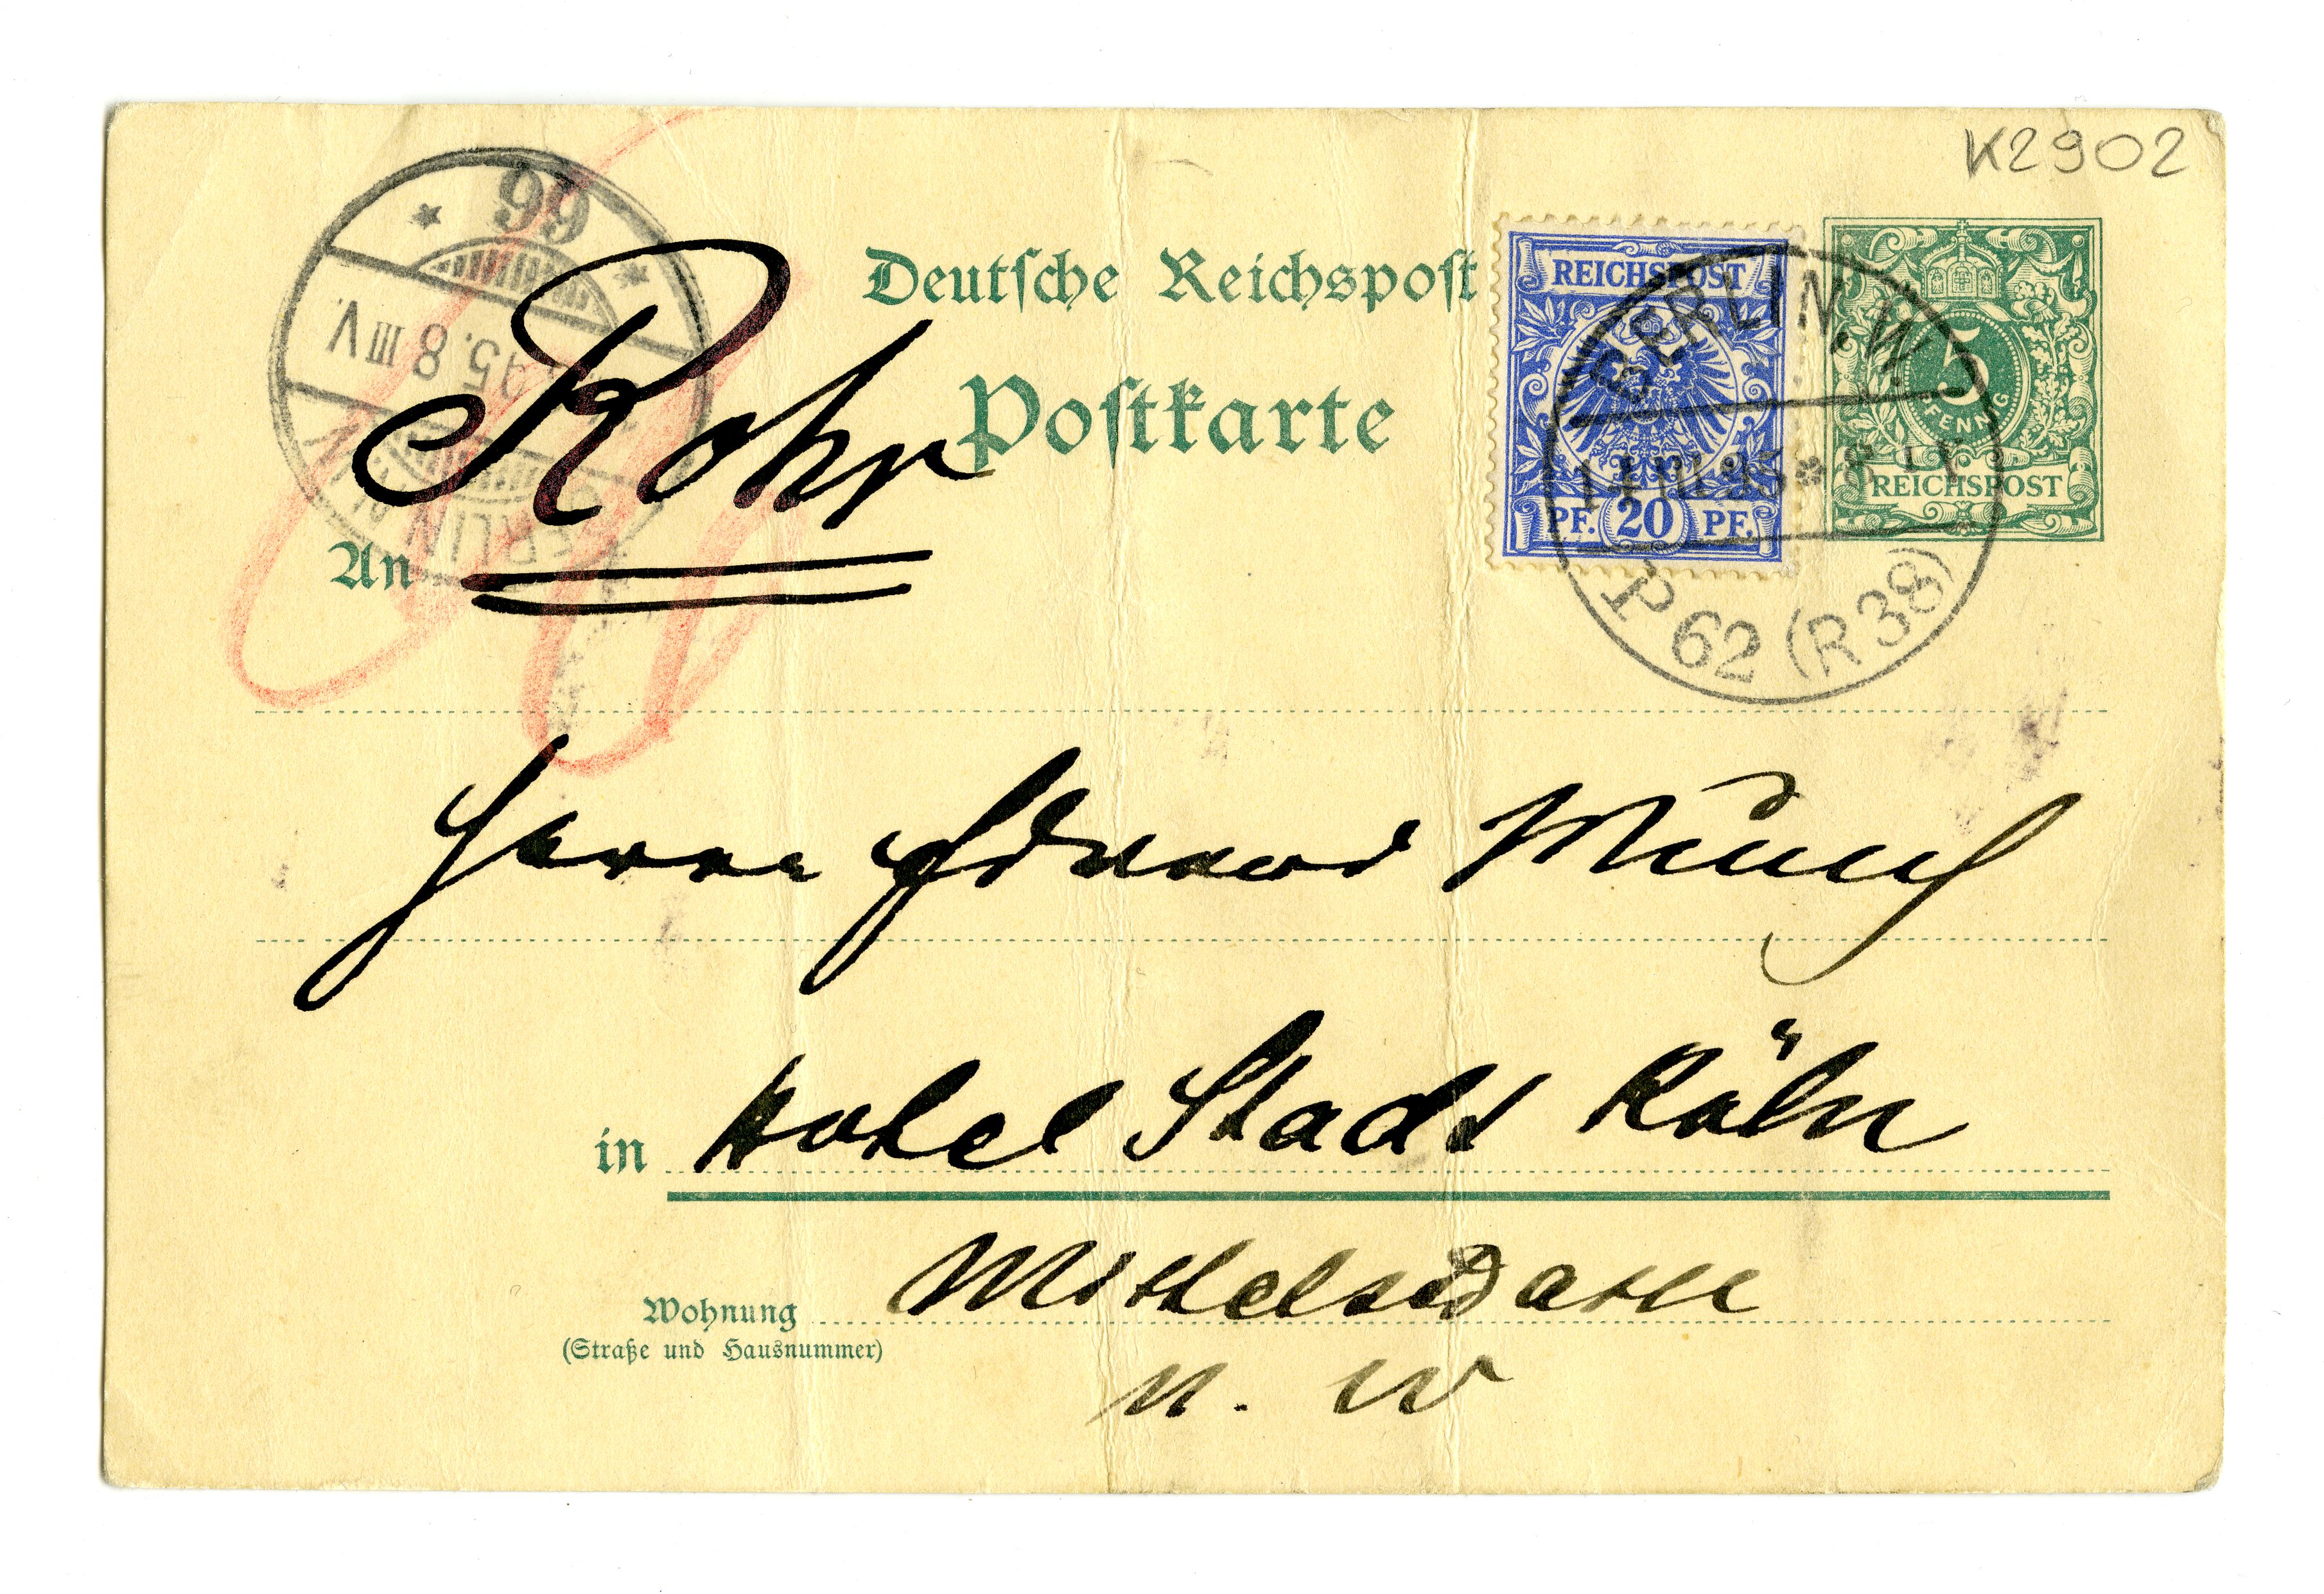 K2902
99
Deutsche Reichspost
REICHSPOST
BERLIN.W.
5
PFENNIG
REICHSPOST
PF. 20 PF.
P 62 (R 38)
95. 8 III V.
BERLIN
Rohr
Postkarte
An
Herrn Edvard Munch
in Hotel Stadt Köln
Wohnung
(Straße und Hausnummer)
N. W